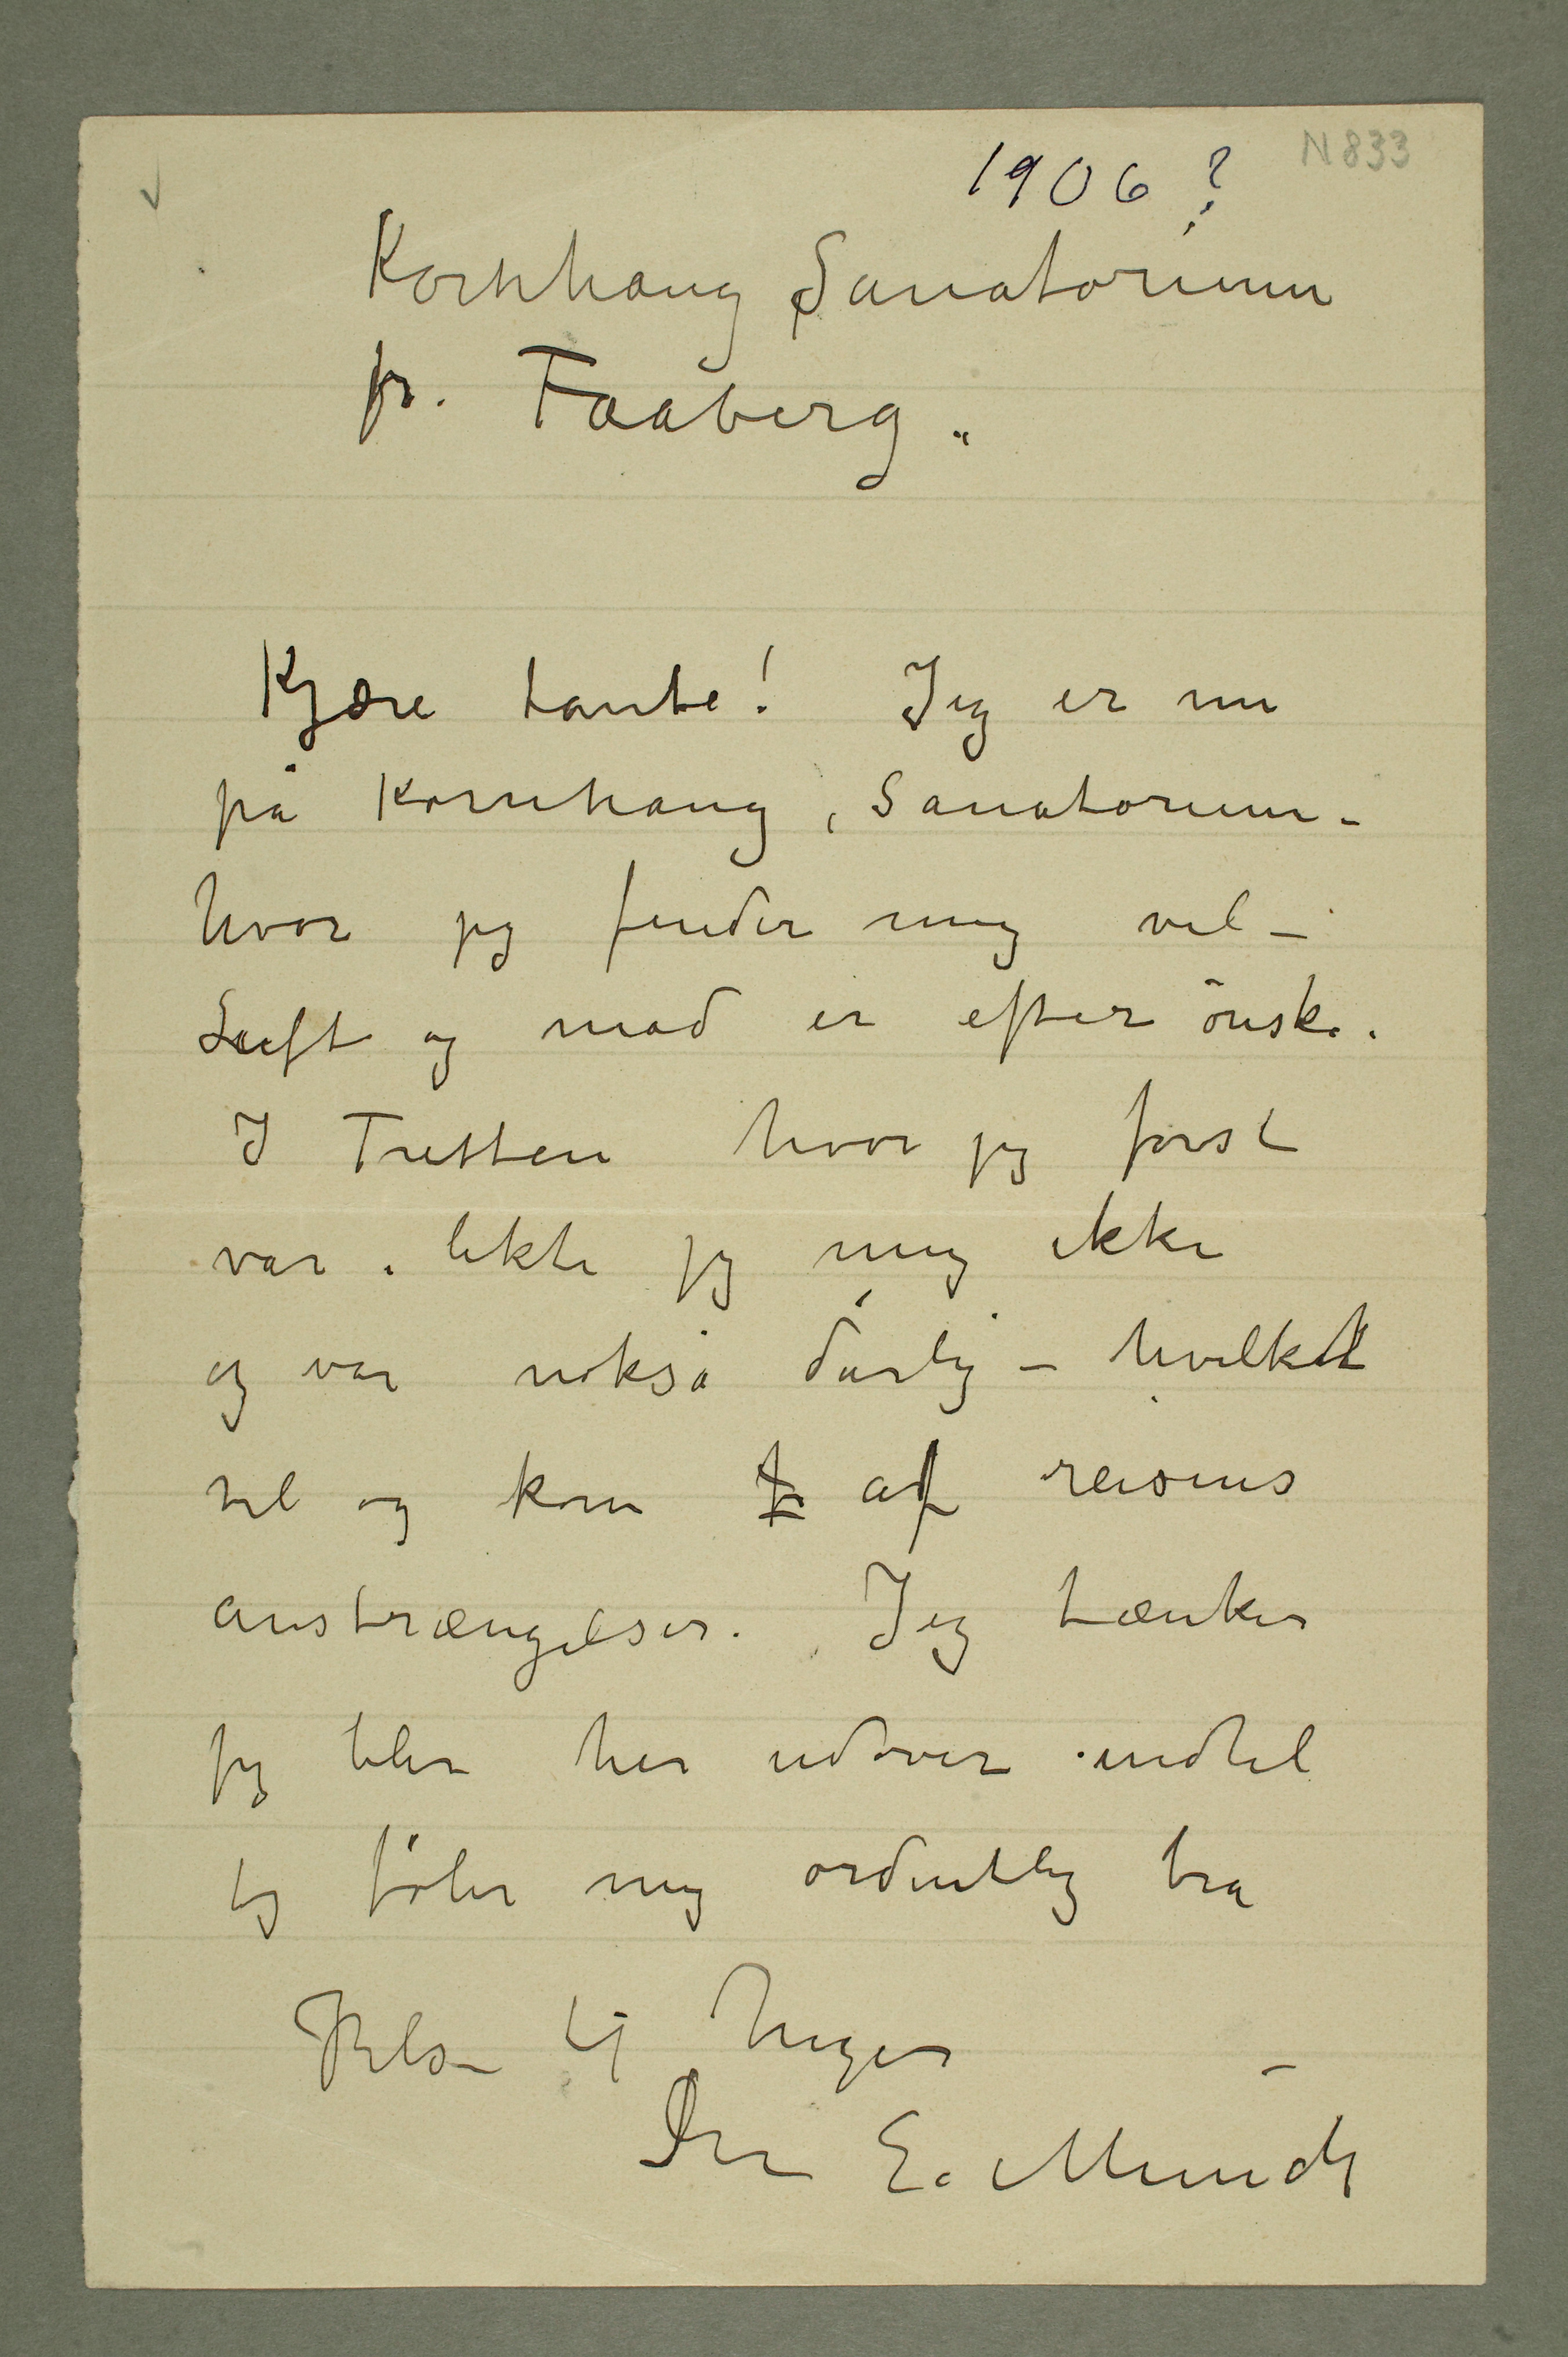 N 833
1906?
Kornhaug Sanatorium
pr. Faaberg.
Kjære tante! Jeg er nu
på Kornhaug, Sanatorium –
hvor jeg finder mig vel –
Luft og mad er efter önske.
I Tretten hvor jeg först
var. likte jeg mig ikke
og var nokså dårlig – hvilket
vel og kom af reisens
anstrængelser. Jeg tænker
jeg blir her udover indtil
jeg föler mig ordentlig bra
Hils Inger –
Din E. Munch